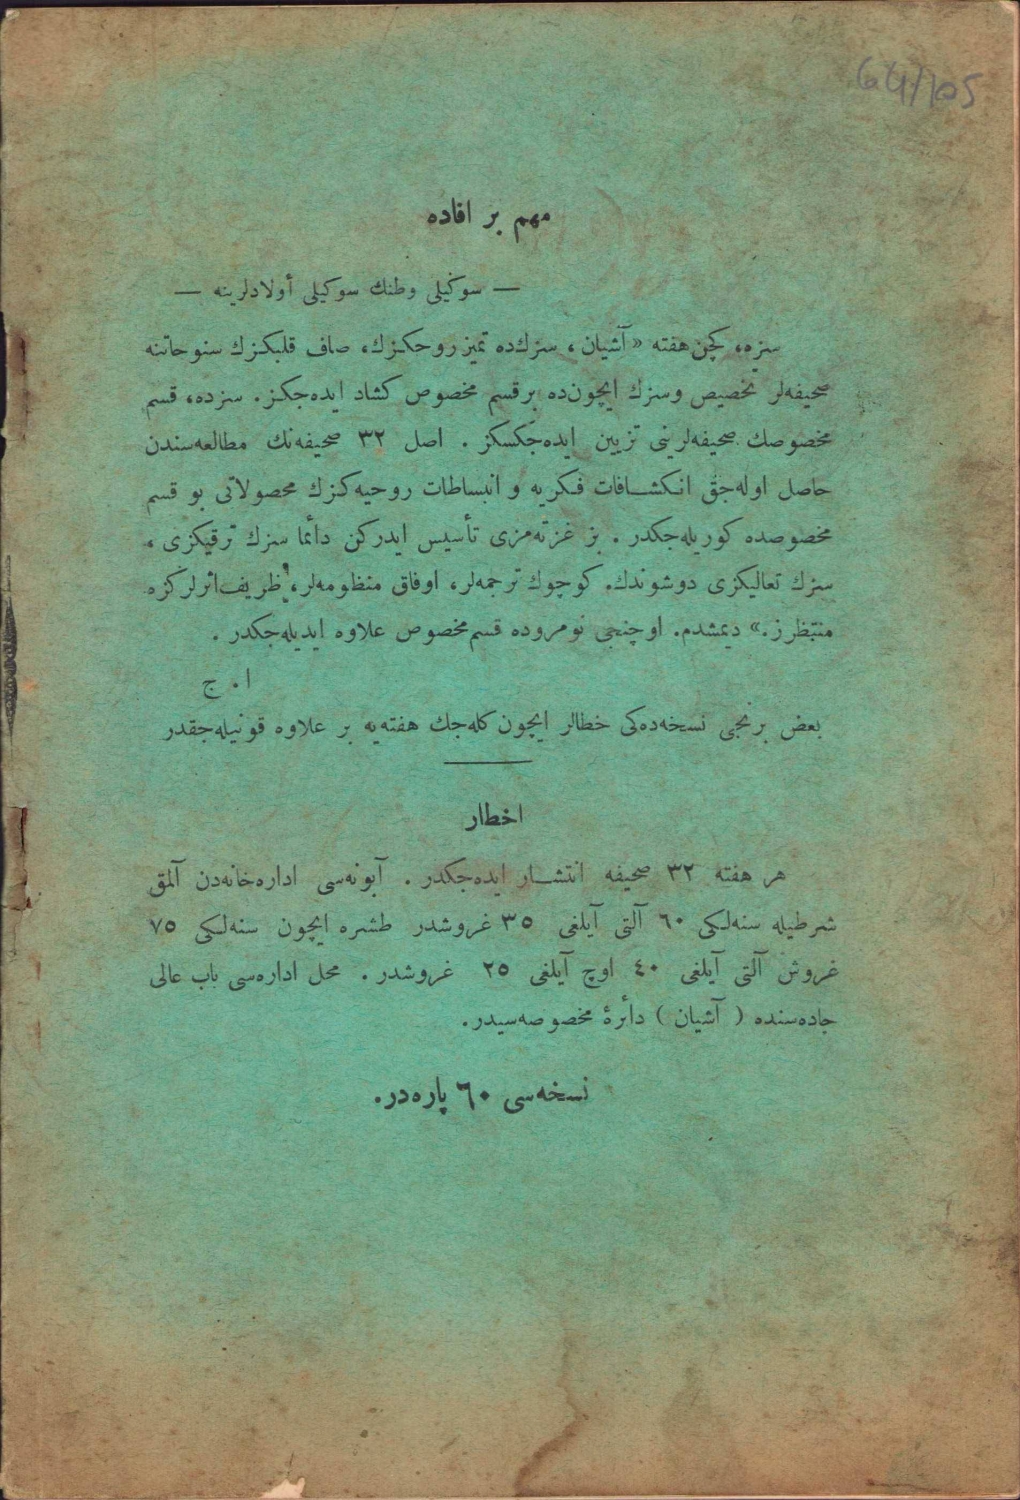 64/105
مهم بر افاده
— سوكیلی وطنك سوكیلی أولادلرینه —
سزه، كچن هفته « آشیان ، سزك‌ده تمیز روحكزك، صاف قلبكزك سنوحاتنه
صحیفه‌لر تخصیص وسزك ایچون‌ده برقسم مخصوص كشاد ایده‌جكز . سزده، قسم
مخصوصك صحیفه‌لرینی تزیین ایده‌جكسكز . اصل ٣٢ صحیفه‌نك مطالعه‌سندن
حاصل اوله‌جق انكشـافات فكریه و انبساطات روحیه‌كزك محصولاتی بو قسم
مخصوصده كوریله‌جكدر . بز غزته‌مزی تأسیس ایدركن دائما سزك ترقیكزی ،
سزك تعالیكزی دوشوندك. كوچوك ترجمه‌لر، اوفاق منظومه‌لر، ظریف اثرلركزه
منتظرز.» دیمشدم. اوچنجی نومروده قسم مخصوص علاوه ایدیله‌جكدر .
ا . ج
بعض برنجی نسخه‌ده‌كی خطالر ایچون كله‌جك هفته‌یه بر علاوه قونیله‌جقدر
اخطار
هر هفته ٣٢ صحیفه انتشـار ایده‌جكدر . آبونه‌سی اداره‌خانه‌دن آلمق
شرطیله سنه‌لكی ٦٠ آلتی آیلغی ٣٥ غروشدر طشره ایچون سنه‌لكی ٧٥
غروش آلتی آیلغی ٤٠ اوچ آیلغی ٢٥ غروشدر . محل اداره‌سی باب عالی
جاده‌سنده ( آشیان ) دائرهٔ مخصوصه‌سیدر.
نسخه‌سی ٦٠ پاره‌در.